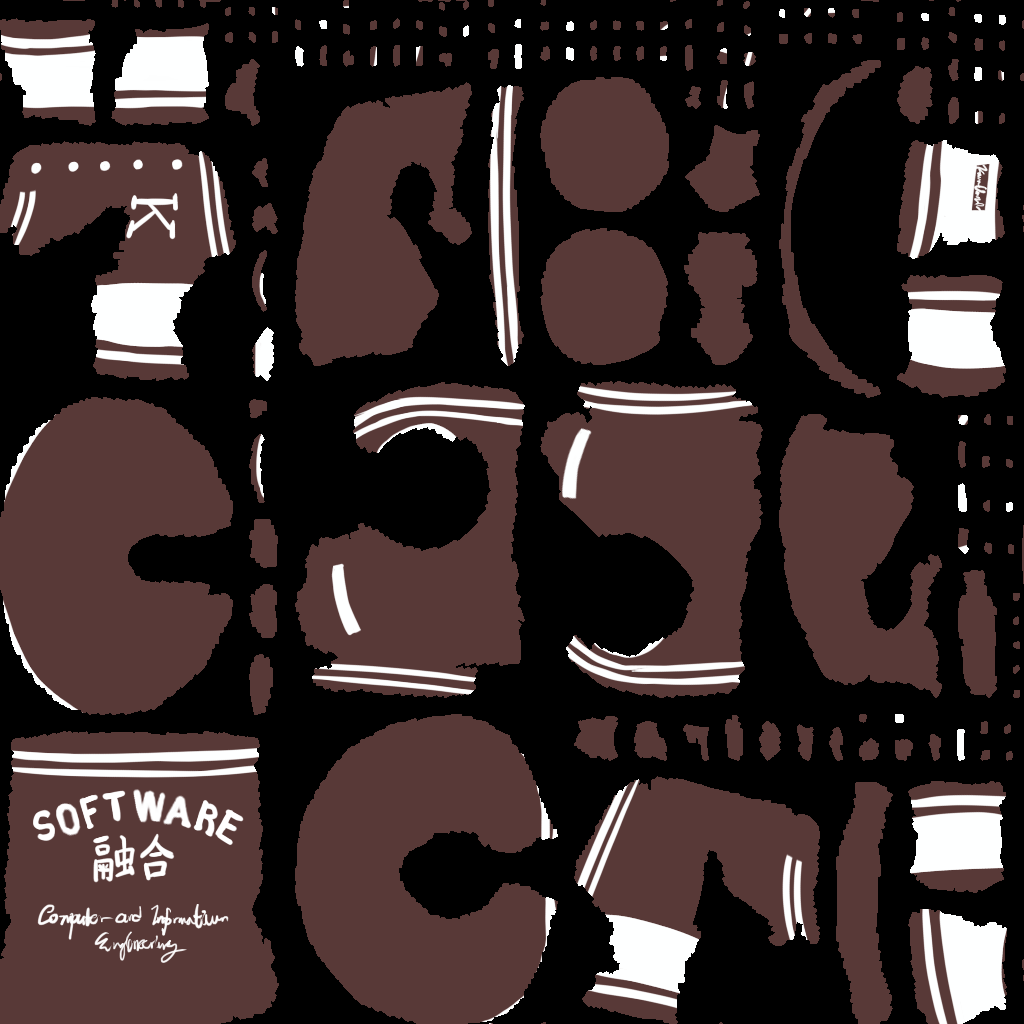 K
SOFTWARE
融合
Computer and Information
Engineering